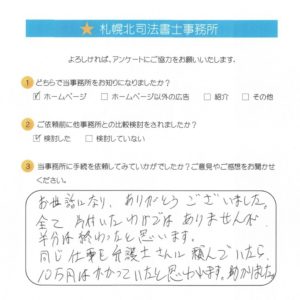 ★ 札幌北司法書士事務所
よろしければ、アンケートにご協力をお願いいたします。
1 どちらで当事務所をお知りになりましたか?
☑ ホームページ □ ホームページ以外の広告 □ 紹介 □ その他
2 ご依頼前に他事務所との比較検討をされましたか?
☑ 検討した □ 検討していない
3 当事務所に手続を依頼してみていかがでしたか?ご意見やご感想をお聞かせ
ください。
お世話になり、ありがとうございました。
全て片付いたわけではありませんが
半分は終わったと思います。
同じ仕事を弁護士さんに頼んでいたら、
10万円はかかっていたと思います。助かりました。